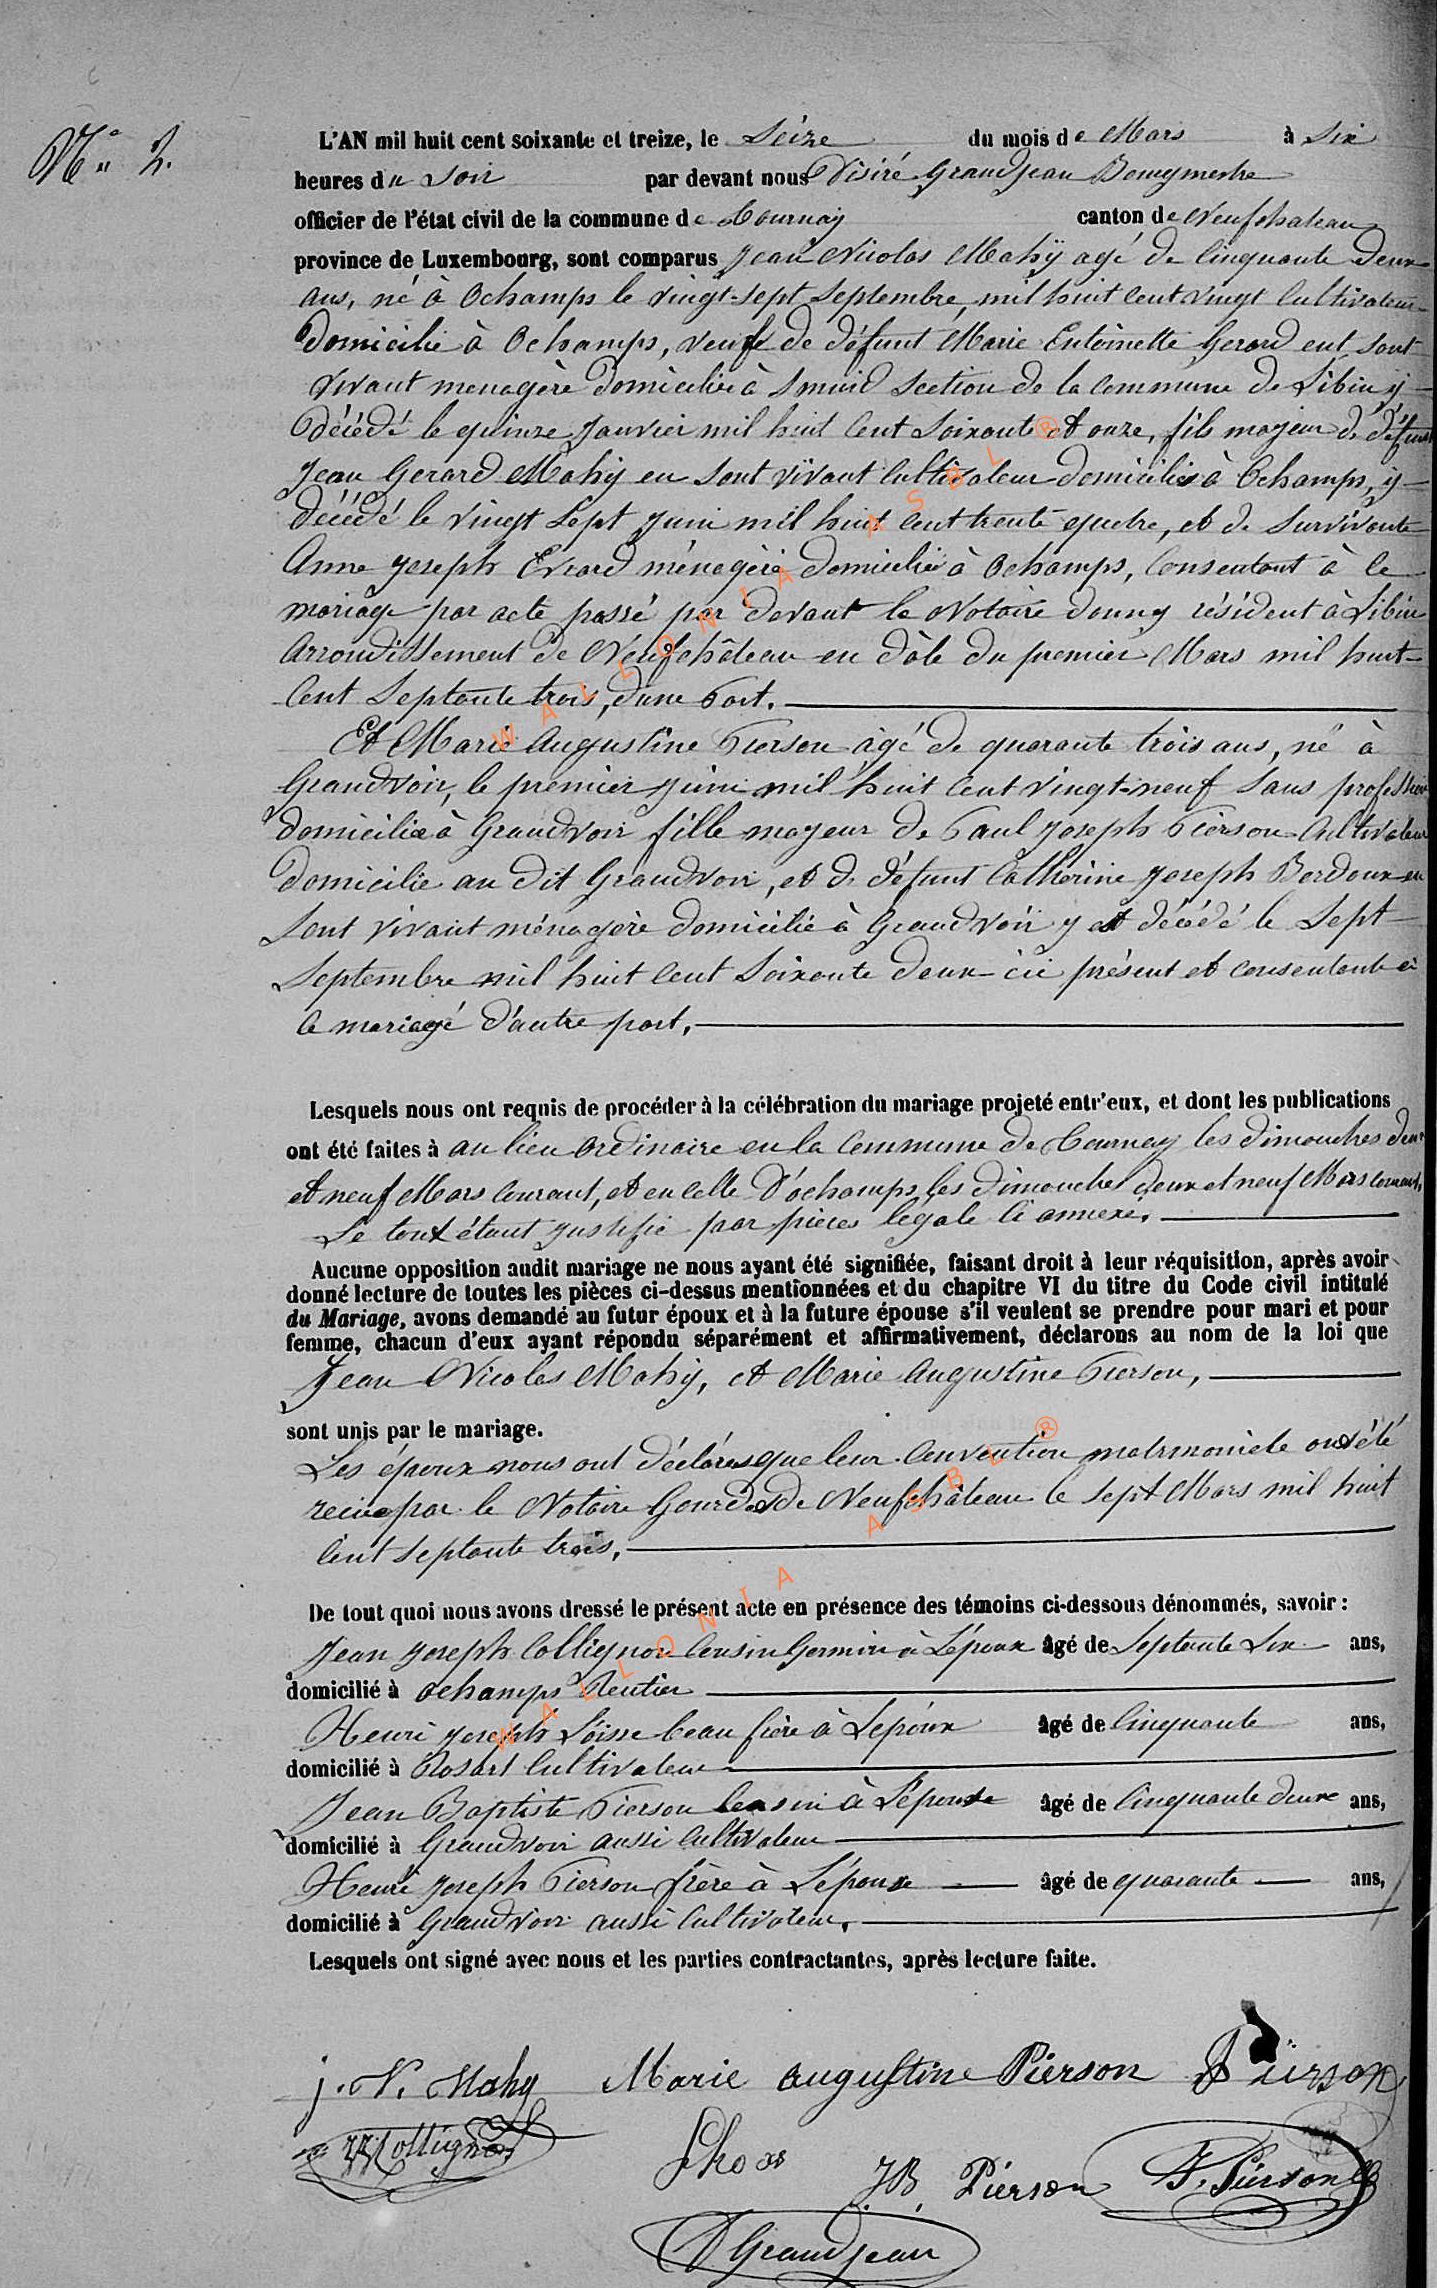 N° 2.
L'AN mil huit cent soixante et treize, le Seize du mois de Mars à Six
heures du Soir par devant nous Désiré Grandjean Bourgmestre
officier de l'état civil de la commune de Tournay canton de Neufchateau
province de Luxembourg, sont comparus Jean Nicolas Mahÿ agé de Cinquante Deux
ans, né à Ochamps le vingt-sept Septembre, mil huit cent vingt Cultivateur
domicilié à Ochamps, veuf de défunt Marie Entoinette Gerard ent sont
vivant menagère domicilié à Smuid Section de la commune de Libin y
décédé le quinze Janvier mil huit cent Soixante et onze, fils majeur de défunt
Jean Gerard Mahy en sont vivant Cultivateur domicilié à Ochamps, y
décédé le vingt Sept Juin mil huit cent trente quatre, et de Survivante
Anne Joseph Evrard ménagère domicilié à Ochamps, Consentant à ce
mariage par acte passé par devant le Notaire Dounÿ résident à Libin
Arrondissement de Neufchâteau en dâte du premier Mars mil huit
Cent Septante trois, d'une Part.
Et Marie Augustine Pierson âgé de quarante trois ans, né à
Grandvoir, le premier Juin mil huit cent vingt-neuf Sans profession
domicilié à Grandvoir fille mayeur de Paul Joseph Pierson Cultivateur
domicilié au dit Grandvoir, et de défunt Catherine Joseph Bordoux en
Sont vivant ménagère domicilié à Grandvoir y est décédé le Sept
Septembre mil huit cent Soixante deux ici présent et consentent à
ce mariagé d'autre part.
Lesquels nous ont requis de procéder à la célébration du mariage projeté entr'eux, et dont les publications
ont été faites à au lieu ordinaire en la Commune de Tournay les dimanches deux
et neuf Mars Courant, et en celle D'ochamps les Dimanches deux et neuf Mars courant,
Le tout étant justifié par pièces légale ci annexé.
Aucune opposition audit mariage ne nous ayant été signifiée, faisant droit à leur réquisition, après avoir
donné lecture de toutes les pièces ci-dessus mentionnées et du chapitre VI du titre du Code civil intitulé
du Mariage, avons demandé au futur époux et à la future épouse s'il veulent se prendre pour mari et pour
femme, chacun d'eux ayant répondu séparément et affirmativement, déclarons au nom de la loi que
Jean Nicolas Mahÿ, et Marie Augustine Pierson,
sont unis par le mariage.
Les époux nous ont déclarés que leur Convention matrmoniele ont été
recue par le Notaire Gourdet de Neufchâteau le Sept Mars mil huit
Cent Septante trois,
De tout quoi nous avons dressé le présent acte en présence des témoins ci-dessous dénommés, savoir :
Jean Joseph Collignon Cousin Germin à L'époux âgé de Septante Six ans,
domicilié à Ochamps Rentier
Henri Joseph beau frère à Lepoux âgé de Cinquante ans,
domicilié à Rosart Cultivateur
Jean Baptiste Pierson Cousin à L'épouse âgé de Cinquante deux ans,
domicilié à Grandvoir aussi Cultivateur
Henri Joseph Pierson frère à L'épouse âgé de quarante ans,
domicilié à Grandvoir aussi Cultivateur.
Lesquels ont signé avec nous et les parties contractantes, après lecture faite.
j. N. Mahy Marie augustine Pierson P Pierson
JJ Collignon JB Pierson Pierson
D Grandjean
WALLONIA ASBL ®
WALLONIA ASBL ®